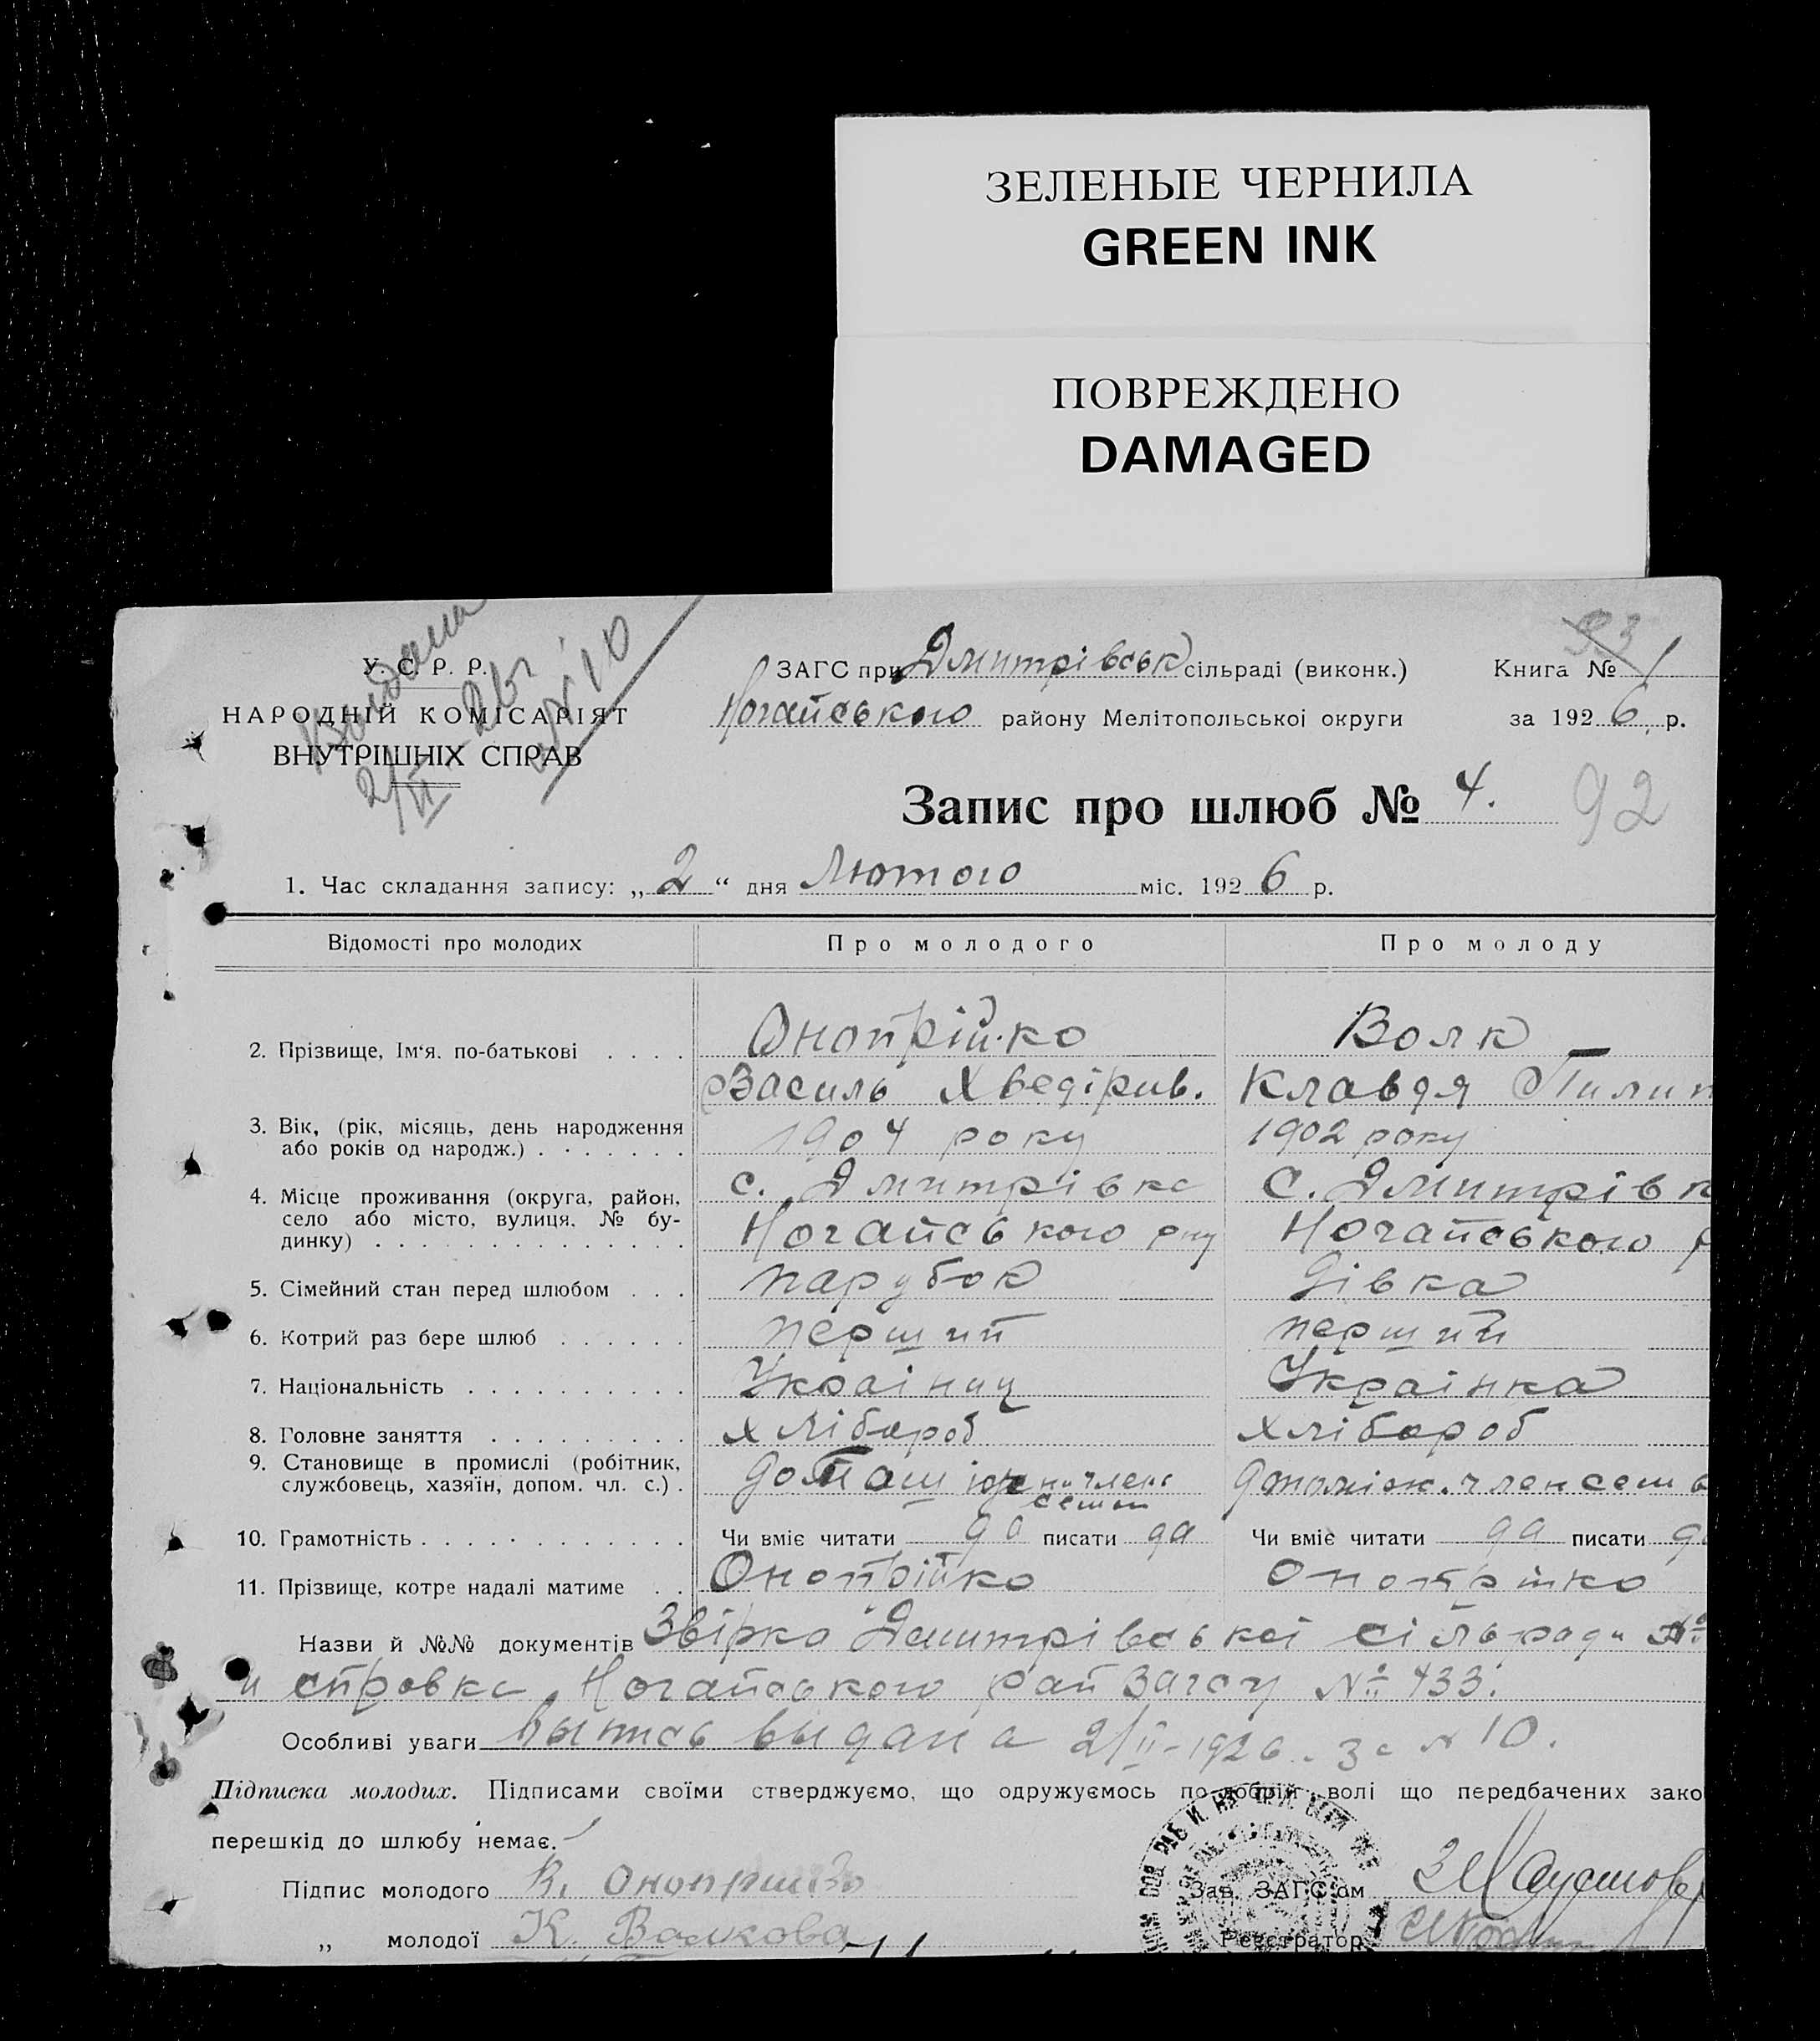 ЗЕЛЕНЫЕ ЧЕРНИЛА
GREEN INK
ПОВРЕЖДЕНО
DAMAGED
Видана
2/II 26 г.
№ 10
93
У. С. Р. Р.
НАРОДНІЙ КОМІСАРІЯТ
ВНУТРІШНІХ СПРАВ
ЗАГС при Дмитрівськ сільраді (виконк.) Книга № 1
Ногайського району Мелітопольської округи за 1926 р.
Запис про шлюб № 4. 92
1. Час складання запису: „2“ дня Лютого міс. 1926 р.
Відомості про молодих Про молодого Про молоду
2. Прізвище, Ім'я. по-батькові . . . . Онопрійко Волк
Василь Хведірив. Клавдя Пилип
3. Вік, (рік, місяць, день народження
або років од народж.) . . . . . . . 1904 року 1902 року
4. Місце проживання (округа, район, с. Дмитрівка С. Дмитрівк
село або місто, вулиця, № бу-
динку) . . . . . . . . . . . . . . Ногайського рну Ногайського р
5. Сімейний стан перед шлюбом . . . парубок дівка
6. Котрий раз бере шлюб . . . . . . перший перший
7. Національність . . . . . . . . . . Українц Українка
8. Головне заняття . . . . . . . . . хлібороб хлібороб
9. Становище в промислі (робітник,
службовець, хазяїн, допом. чл. с.) . член сем
10. Грамотність . . . . . . . . . . . . Чи вміє читати да писати да Чи вміє читати да писати да
11. Прізвище, котре надалі матиме . . Онопрійко Онопрійко
Назви й №№ документів Звірка Дмитрівської сільради №
и справка Ногайського райзагсу № 433.
Особливі уваги выпись выдана 2/II-1926 за № 10.
Підписка молодих. Підписами своїми стверджуємо, що одружуємось по добрій волі що передбачених зако
перешкід до шлюбу немає.
Підпис молодого В. Оноприйко Зав. ЗАГС'ом
„ молодої К. Волкова Реєстратор